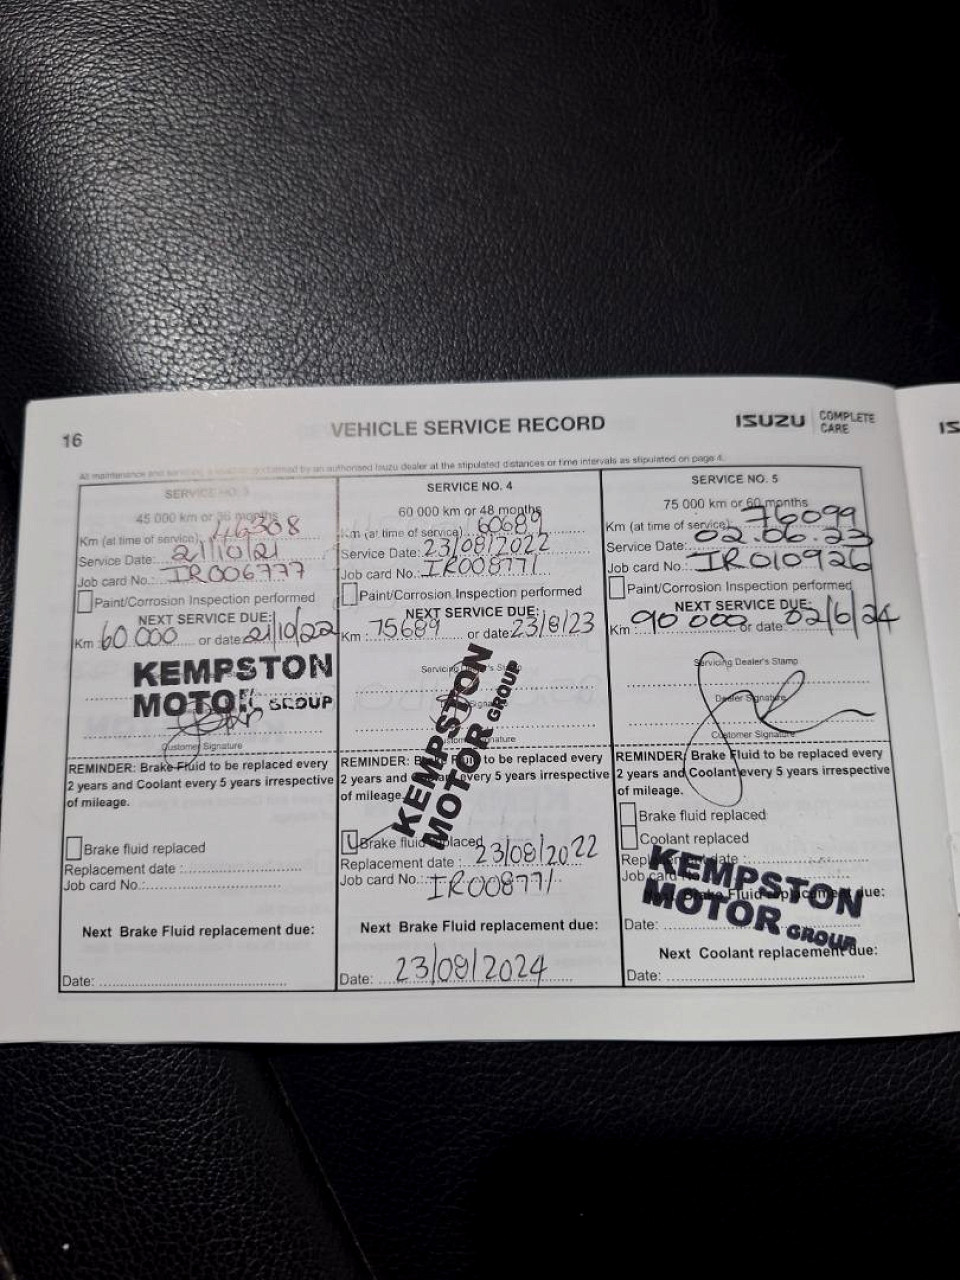 16
VEHICLE SERVICE RECORD
ISUZU COMPLETE CARE
IS
All maintenance and servicing by an authorised Isuzu dealer at the stipulated distances or time intervals as stipulated on page 4.
SERVICE NO. 3
45 000 km or 36 months
Km (at time of service): 46308
Service Date: 21/10/21
Job card No.: IR006777
Paint/Corrosion Inspection performed
NEXT SERVICE DUE:
Km: 60 000 or date: 21/10/22
KEMPSTON
MOTOR GROUP
Customer Signature
REMINDER: Brake Fluid to be replaced every
2 years and Coolant every 5 years irrespective
of mileage.
Brake fluid replaced
Replacement date :
Job card No.:
Next Brake Fluid replacement due:
Date:
SERVICE NO. 4
60 000 km or 48 months
Km (at time of service): 60689
Service Date: 23/08/2022
Job card No.: IR008771
Paint/Corrosion Inspection performed
NEXT SERVICE DUE:
Km : 75689 or date: 23/8/23
Servicing Dealer's Stamp
KEMPSTON
MOTOR GROUP
Customer Signature
REMINDER: Brake Fluid to be replaced every
2 years and Coolant every 5 years irrespective
of mileage.
Brake fluid replaced
Replacement date : 23/08/2022
Job card No.: IR008771
Next Brake Fluid replacement due:
Date: 23/08/2024
SERVICE NO. 5
75 000 km or 60 months
Km (at time of service): 76099
Service Date: 02.06.23
Job card No.: IR010926
Paint/Corrosion Inspection performed
NEXT SERVICE DUE:
Km : 90 000 or date: 02/6/24
Servicing Dealer's Stamp
Dealer Signature
Customer Signature
REMINDER: Brake Fluid to be replaced every
2 years and Coolant every 5 years irrespective
of mileage.
Brake fluid replaced
Coolant replaced
Replacement date :
Job card No
KEMPSTON
MOTOR GROUP
Brake Fluid replacement due:
Date:
Next Coolant replacement due:
Date: